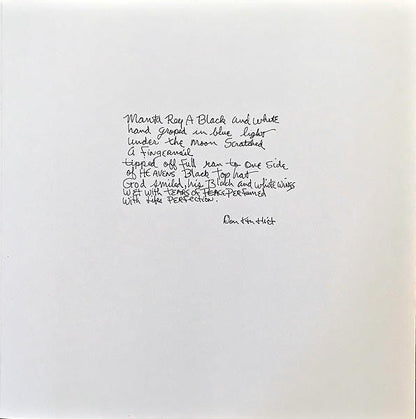 Manta Ray A Black and white
hand groped in blue light
under the moon Scratched
A Fingernail
tipped off full ran to one side
of HEAVENS Black Top hat
God smiled, his Black and white wings
WET with TEARS of PEACE PERFUMED
with Lifes PERFECTION.
Don Van Vliet